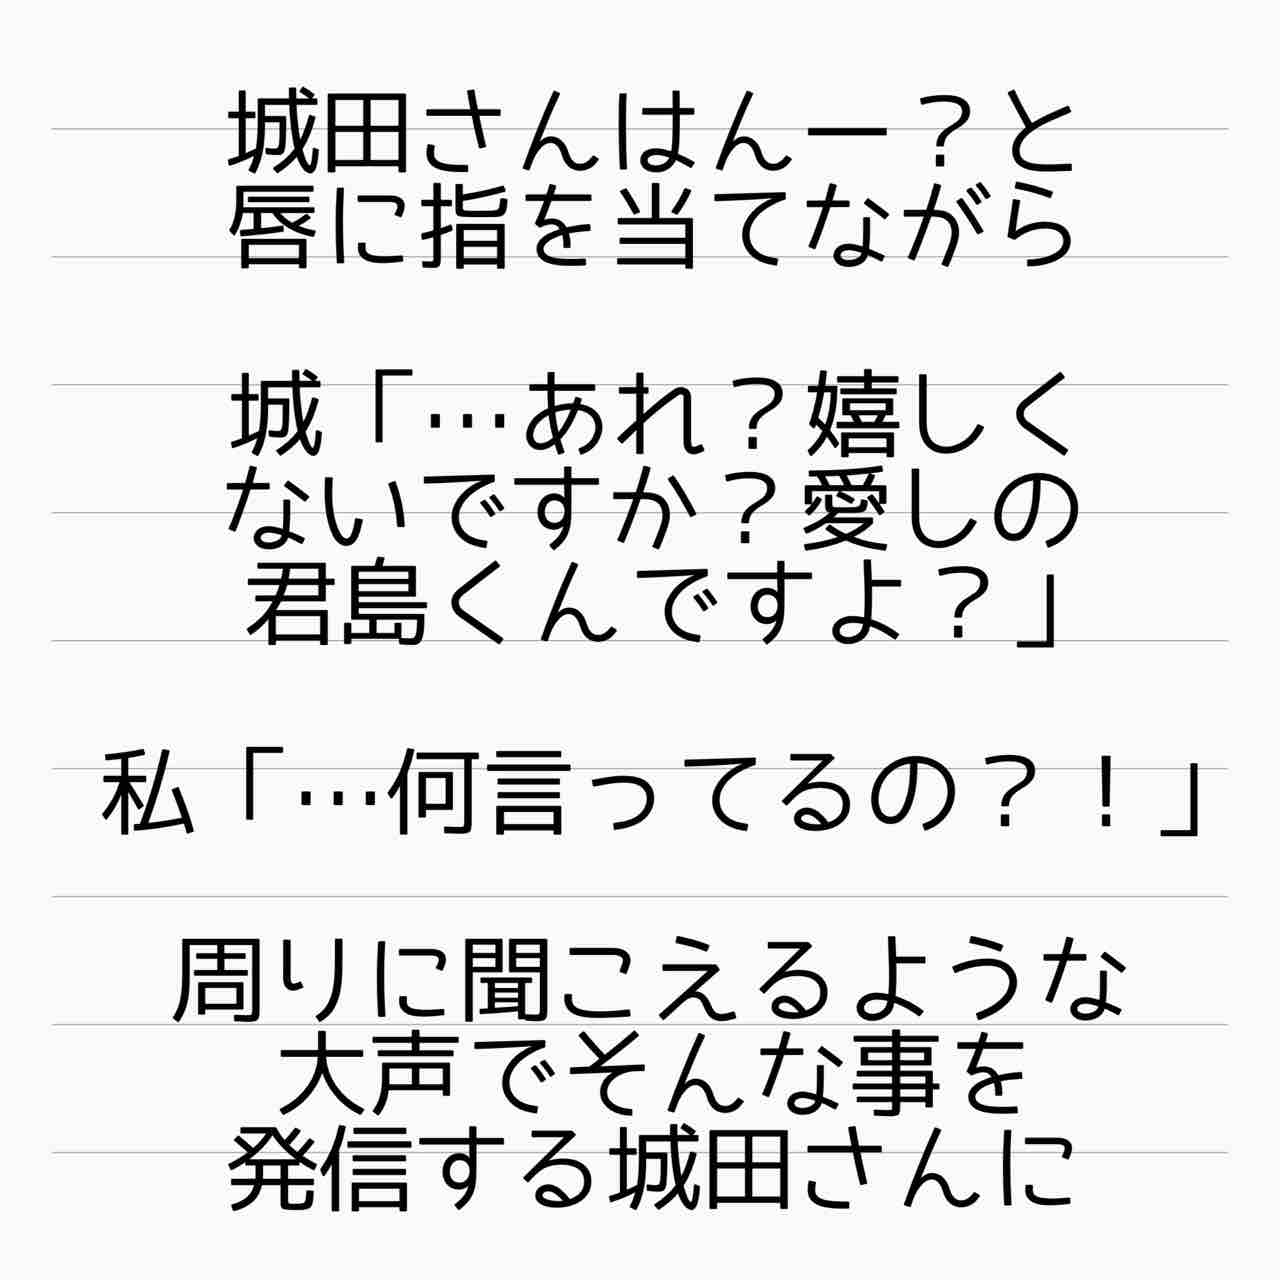 城田さんはんー？と
唇に指を当てながら
城「…あれ？嬉しく
ないですか？愛しの
君島くんですよ？」
私「…何言ってるの？！」
周りに聞こえるような
大声でそんな事を
発信する城田さんに